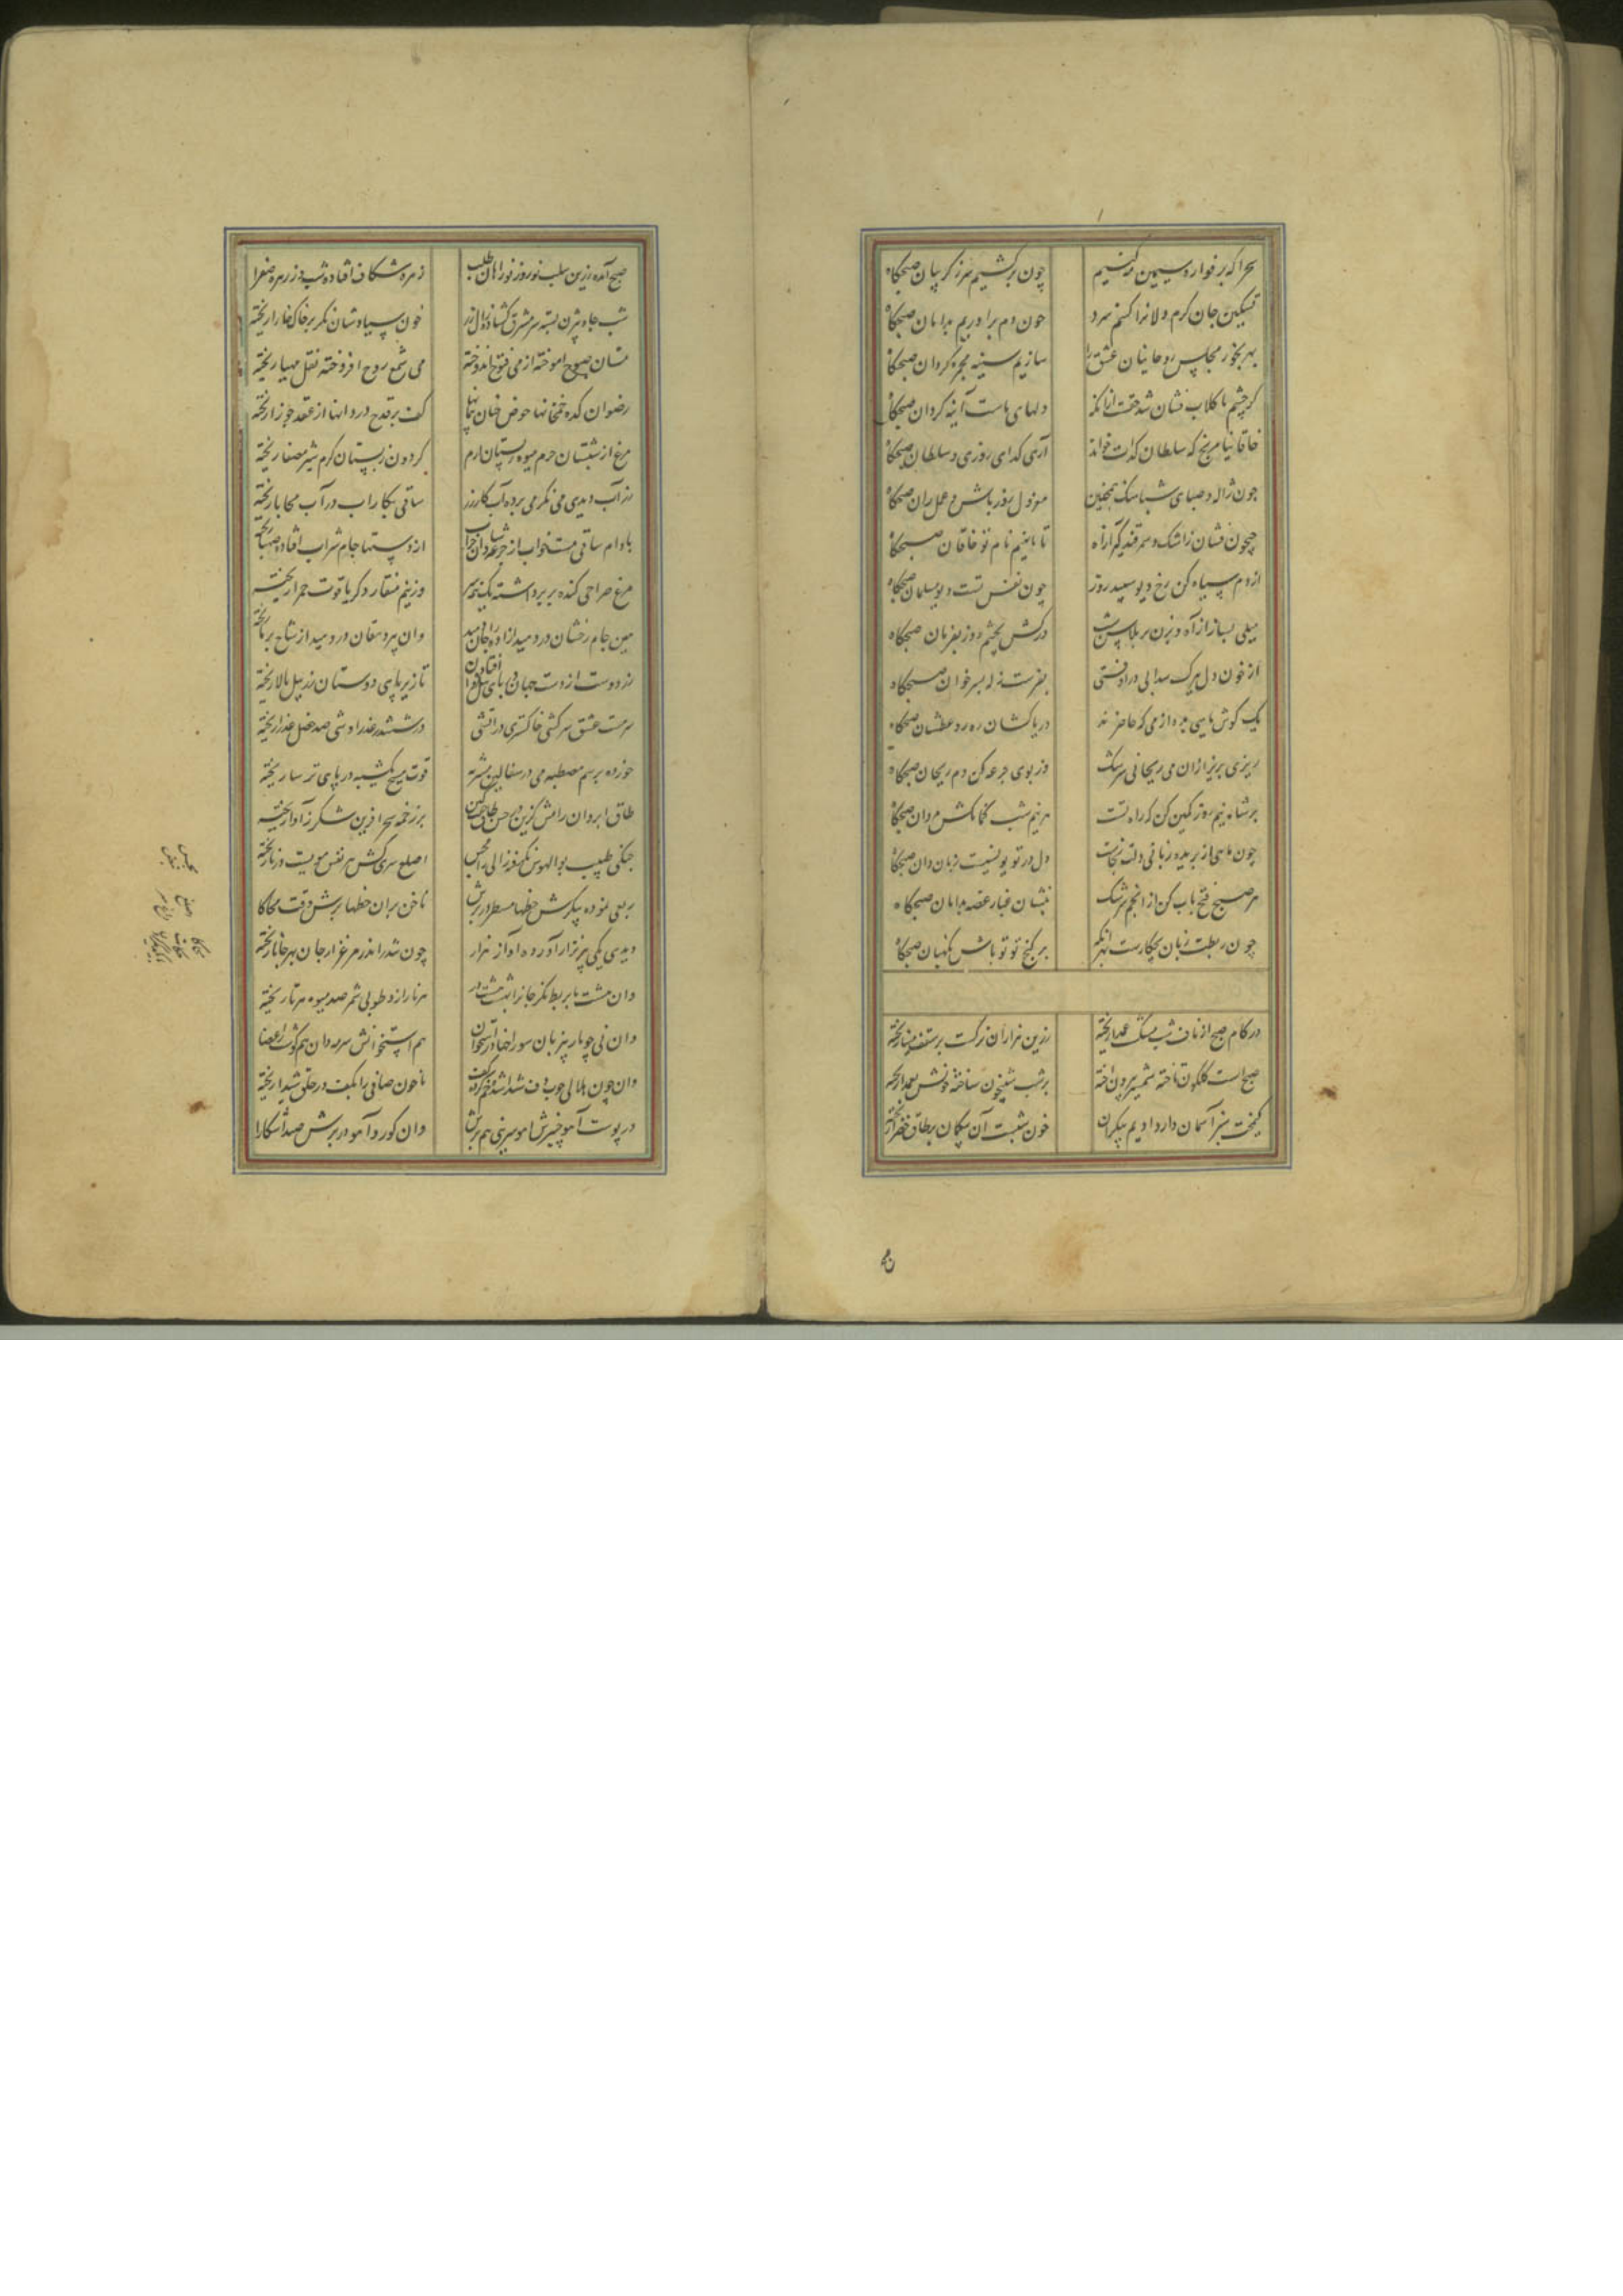 بحرا که بر فواره سیمین بر کشیم چون برکشیم سر ز گریبان صبحگاه
تسکین جان گرم دلانرا کنیم سرد چون دم برآوریم بدامان صبحگاه
بهر بخور مجلس روحانیان عشق سازیم سینه مجمره گردان صبحگاه
دلهای ماست آینه گردان صبحگاه
خاقانیا مرنج که سلطان گدات خواند آری گدای روزی و سلطان صبحگاه
چون ژاله و صبای شباهنگ همچنین معزول روز باش و عمل ران صبحگاه
جیحون فشان ز اشک و سمرقند گیر از آه تا بانیم نام تو خاقان صبحگاه
از دم سیاه کن رخ دیو سپید روز چون نفس تست دیو مسلمان صبحگاه
میلی بساز از آه و بزن بر پلاس شب درکش بچشم روز بفرمان صبحگاه
از خون دل بفرست نزل بر سر خوان صبحگاه
یک گوش ماهی بده از می که حاضرند دریاکشان ره زده عطشان صبحگاه
ریزی بریز ازان می ریحانی سرشک وز بوی جرعه کن دم ریحان صبحگاه
بر شاه نیم روز کمین کن که راه تست هر نیم شب کمانکش مردان صبحگاه
چون ماهی ار بریده زبانی دلت بجاست دل در تو یونسیست زبان دان صبحگاه
هر صبح فتح باب کن از انجم سرشک بنشان غبار غصه بدامان صبحگاه
چون ربطت زبان بچکارست بهر آنکه بر گنج تو تو باش نگهبان صبحگاه
در کام صبح از ناف شب مشک عمدا ریخته زرین هزاران نرگست بر سقف مینا ریخته
صبح است گلگون تاخته شمشیر بیرون آخته بر شب شبیخون ساخته خونش بعمدا ریخته
کیمخت سبز آسمان دارد ادیم بیکران خون شبست آن بیگمان بر طاق خضرا ریخته
صبح آمده زرین سلب نوروز نوراهان طلب زهره شکاف افتاده شب وز زهره صفرا ریخته
شب چاه بیژن بسته سر مشرق گشاده زال زر خون سیاوشان نگر بر خاک و خارا ریخته
مستان صبوح آموخته از می فتوح اندوخته می شمع روح افروخته نقل مهیا ریخته
رضوان کده خمخانها حوض جنان پیمانها کف بر قدح دردانها از عقد جوزا ریخته
مرغ از شبستان حرم میوه ز بستان ارم گردون ز پستان کرم شیر مصفا ریخته
زر آب دیدی می نگر می برده آب کار زر ساقی بکار آب در آب محابا ریخته
بادام ساقی مست خواب از جرعه شادروان خراب از دستها جام شراب افتاده صهبا ریخته
مرغ صراحی کنده پر برداشته یک نیمه سر وز نیم منقار دگر یاقوت حمرا ریخته
بین جام رخشان در دمید آزاده را جان در دمید وان پیر دهقان در دمید از شاخ برنا ریخته
زر دوست از دست جهان در پای پیل افتاده دان تا زیر پای دوستان زر پیل بالا ریخته
سرمست عشق سرکشی خاکستری در آتشی در ششدر عذرا وشی صد خصل عذرا ریخته
خورده برسم مصطبه می در سفالین مشربه قوت مسیح یکشبه در پای ترسا ریخته
طاق ابروان رامش گزین در حسن طاق و جفت کین بر زخمه سحر آفرین شکر ز آوا ریخته
چنگی طبیب بوالهوس بگرفته زالی را مجس اصلع سری کش هر نفس مویست در پا ریخته
ربعی نموده پیکرش خطها مسطر در برش ناخن بران خطها برش وقت محاکا
دیدی یکی پیر نزار آورده آواز هزار چون شد اندر مرغزار جان بهر جانا ریخته
وان هشت تا بربط نگر جانرا بهشت هشت در هر تار ازو طوبی ثمر صد میوه هر تا ریخته
وان نی چو مار بی زبان سوراخها در استخوان هم استخوانش سرمه دان هم گوشت ز اعضا
وان چون هلالی چوب دف شیدا شده خم کرده کف تا خون صافی را بکف در حلق شیدا ریخته
در پوست آهو چنبرش آهو سرینی هم برش وان گور و آهو در برش صید آشکارا